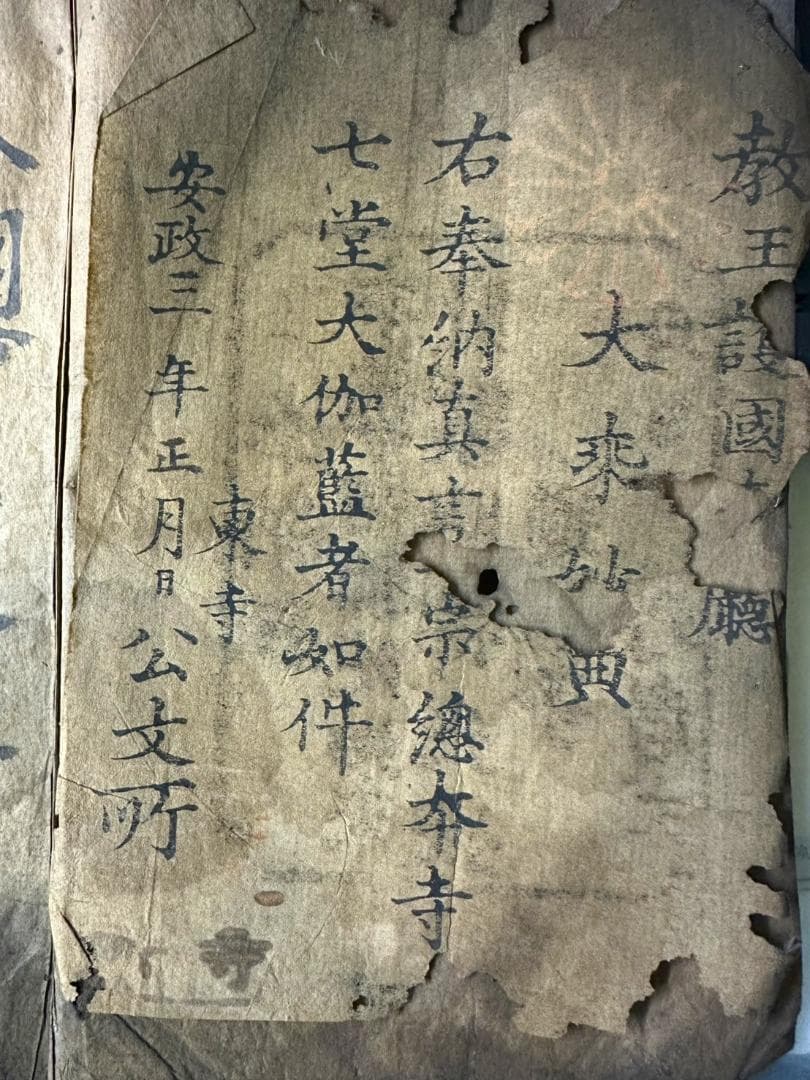 教王護國廳
大乗妙典
右奉納真言宗總夲寺
七堂大伽藍者如件
東寺
安政三年正月日公文所
寺